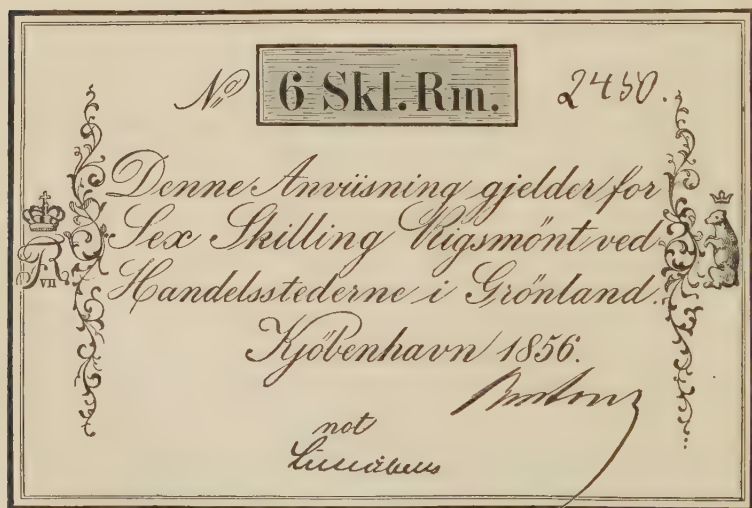 No 6 Skl. Rm. 2450.
Denne Anviisning gjelder for
Sex Skilling Rigsmönt ved
Handelsstederne i Grönland.
Kjöbenhavn 1856.
not
VII